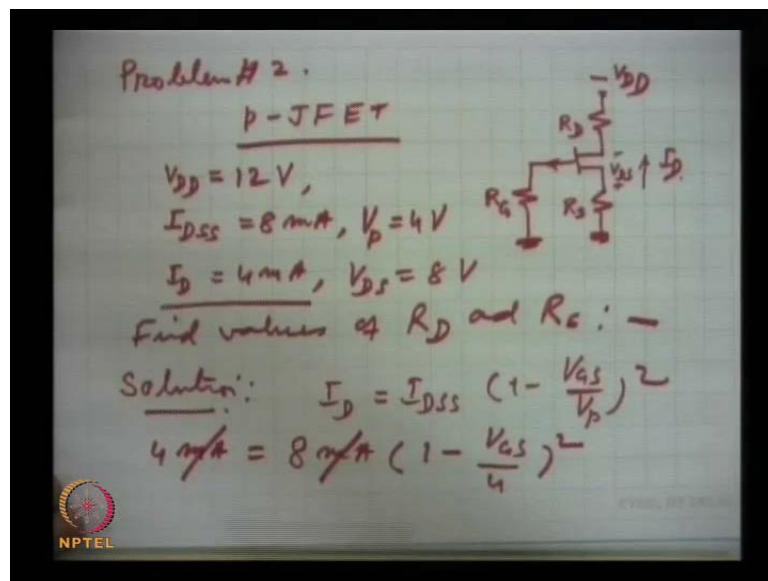 Problem # 2.
p-JFET
V_DD = 12 V,
I_DSS = 8 mA, V_p = 4V
I_D = 4 mA, V_DS = 8 V
Find values of R_D and R_S : —
Solution: I_D = I_DSS (1 - V_GS/V_p)^2
4 mA = 8 mA (1 - V_GS/4)^2
-V_DD
R_D
V_DS
I_D
R_G
R_S
NPTEL